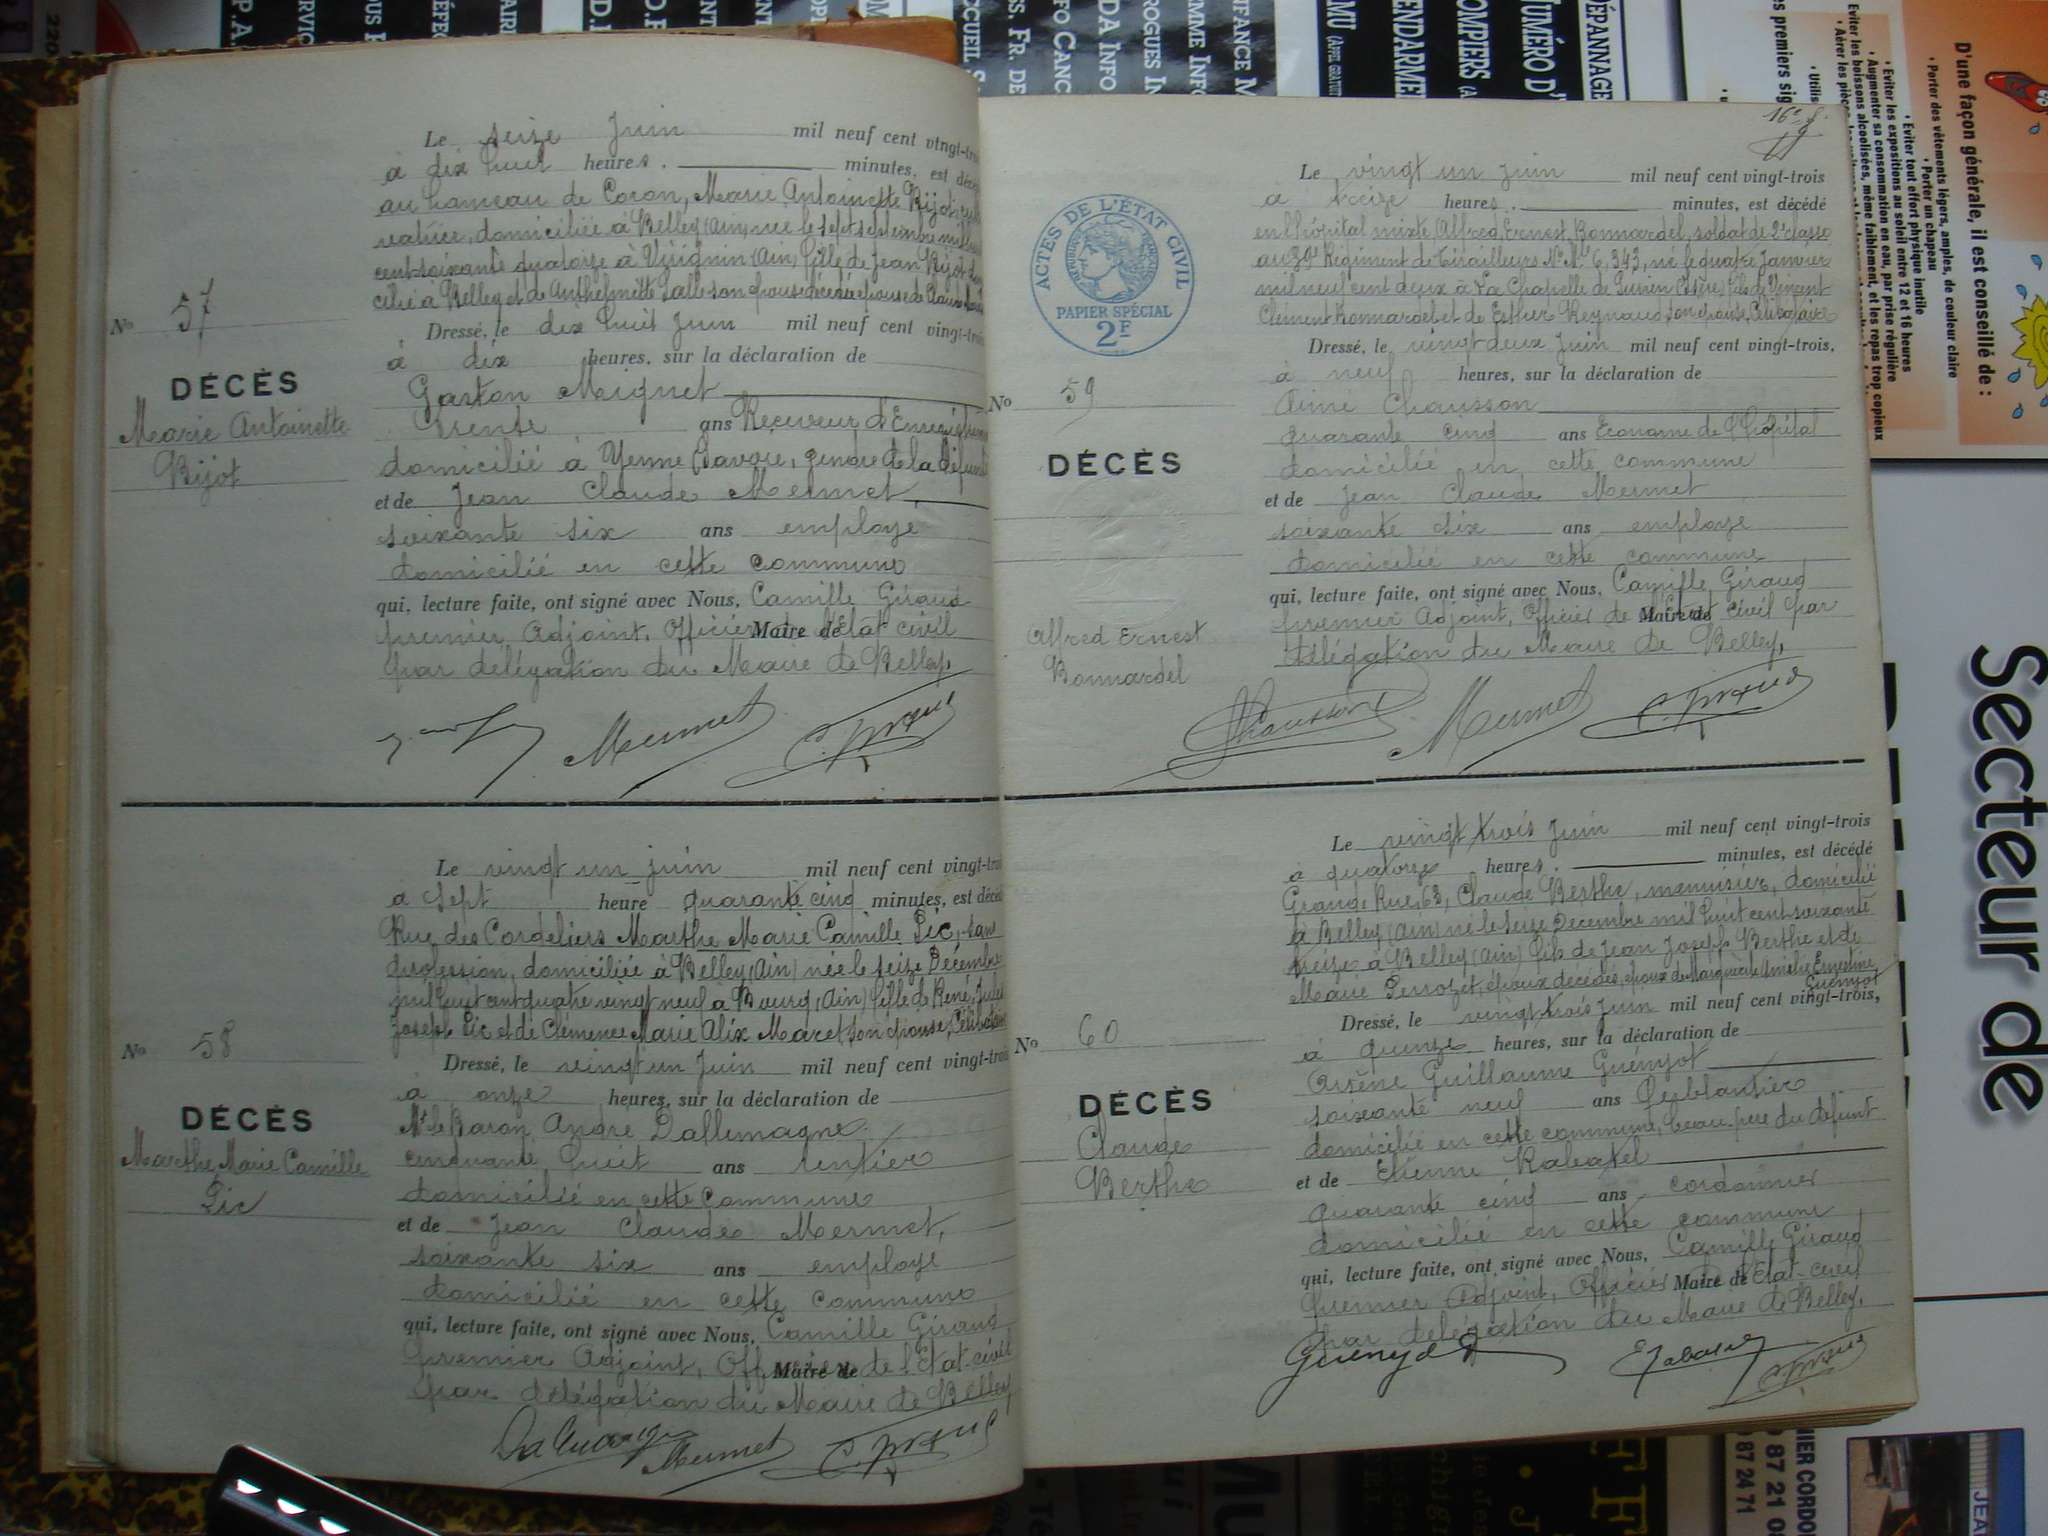 Le seize Juin mil neuf cent vingt-trois
à dix huit heures. minutes, est décé
au hameau de Coron, Marie Antoinette Bijot,
domiciliée à Belley (Ain) née le sept septembre mil
cent soixante quatorze à Virignin (Ain) fille de Jean Bijot
cilié à Belley et de Anthelmette son épouse décédée épouse de
No 57
DÉCÈS
Marie Antoinette
Bijot
Dressé, le dix huit Juin mil neuf cent vingt-trois
à dix heures, sur la déclaration de
Gaston Mignet
trente ans Receveur d'Enregistrem
domicilié à Yenne (Savoie), gendre de la défunte
et de Jean Claude Mermet,
soixante six ans employé
domicilié en cette commune
qui, lecture faite, ont signé avec Nous, Camille Giraud
premier Adjoint, Officier de l'Etat civil
Maire de
par délégation du Maire de Belley.
Mermet C. Giraud
Le vingt un juin mil neuf cent vingt-trois
à sept heure quarante cinq minutes, est décé
Rue des Cordeliers Marthe Marie Camille Pic, sans
profession, domiciliée à Belley (Ain) née le seize Décembre
mil huit cent quatre vingt neuf à Bourg (Ain) fille de René, Jules
Joseph Pic et de Clémence Marie Alix Maret son épouse, Célibataire
No 58
DÉCÈS
Marthe Marie Camille
Pic
Dressé, le vingt un Juin mil neuf cent vingt-trois
à onze heures, sur la déclaration de
Mr le Baron André Dallemagne
cinquante huit ans rentier
domicilié en cette Commune
et de Jean Claude Mermet,
soixante six ans employé
domicilié en cette commune
qui, lecture faite, ont signé avec Nous, Camille Giraud
premier Adjoint, Officier de l'Etat-civil
Maire de
par délégation du Maire de Belley
Dallemagne Mermet C. Giraud
16e f.
Le vingt un Juin mil neuf cent vingt-trois
à treize heures. minutes, est décédé
en l'hôpital mixte, Alfred, Ernest, Bonnardel, soldat de 2e classe
au 39e Régiment de Tirailleurs No Mle 6,343, né le quatre Janvier
mil neuf cent deux à La Chapelle de Surieu (Isère) fils de Vincent
Clément Bonnardel et de Esther Reynaud son épouse, Célibataire
ACTES DE L'ÉTAT CIVIL
RÉPUBLIQUE FRANÇAISE
PAPIER SPÉCIAL
2F
No 59
DÉCÈS
Alfred Ernest
Bonnardel
Dressé, le vingt deux Juin mil neuf cent vingt-trois,
à neuf heures, sur la déclaration de
Aimé Chausson
quarante cinq ans Econome de l'Hôpital
domicilié en cette commune
et de Jean Claude Mermet
soixante six ans employé
domicilié en cette commune
qui, lecture faite, ont signé avec Nous, Camille Giraud
premier Adjoint, Officier de l'Etat civil par
Maire de
délégation du Maire de Belley,
Chausson Mermet C. Giraud
Le vingt trois Juin mil neuf cent vingt-trois
à quatorze heures. minutes, est décédé
Grande Rue, 63, Claude Berthe, menuisier, domicilié
à Belley (Ain) né le seize Décembre mil huit cent soixante
treize à Belley (Ain) fils de Jean Joseph Berthe et de
Marie Perrozet, époux décédés, époux de Marguerite Amélie Ernestine
Guényot
No 60
DÉCÈS
Claude
Berthe
Dressé, le vingt trois Juin mil neuf cent vingt-trois,
à quinze heures, sur la déclaration de
Arsène Guillaume Guényot
soixante neuf ans Ferblantier
domicilié en cette commune, beau-père du défunt
et de Etienne Rabatel
quarante cinq ans cordonnier
domicilié en cette commune
qui, lecture faite, ont signé avec Nous, Camille Giraud
premier Adjoint, Officier de l'Etat-civil
Maire de
par délégation du Maire de Belley,
Guényot E. Rabatel C. Giraud
DÉPANNAGE
NUMÉRO D'
OMPIERS
ENDARME
ENFANCE M
OMME INFO
ROGUES IN
DA INFO
FO CANC
CCUEIL S
D'une façon générale, il est conseillé de :
• Porter des vêtements légers, amples, de couleur claire
• Porter un chapeau
• Eviter tout effort physique inutile
• Eviter les expositions au soleil entre 12 et 16 heures
• Augmenter sa consommation en eau, par prise régulière
Eviter les boissons alcoolisées, même faiblement, et les repas trop copieux
• Aérer les pièces
es premiers sig
• Utilis
Secteur de
NIER CORDO
87 21 0
87 24 71
JEA